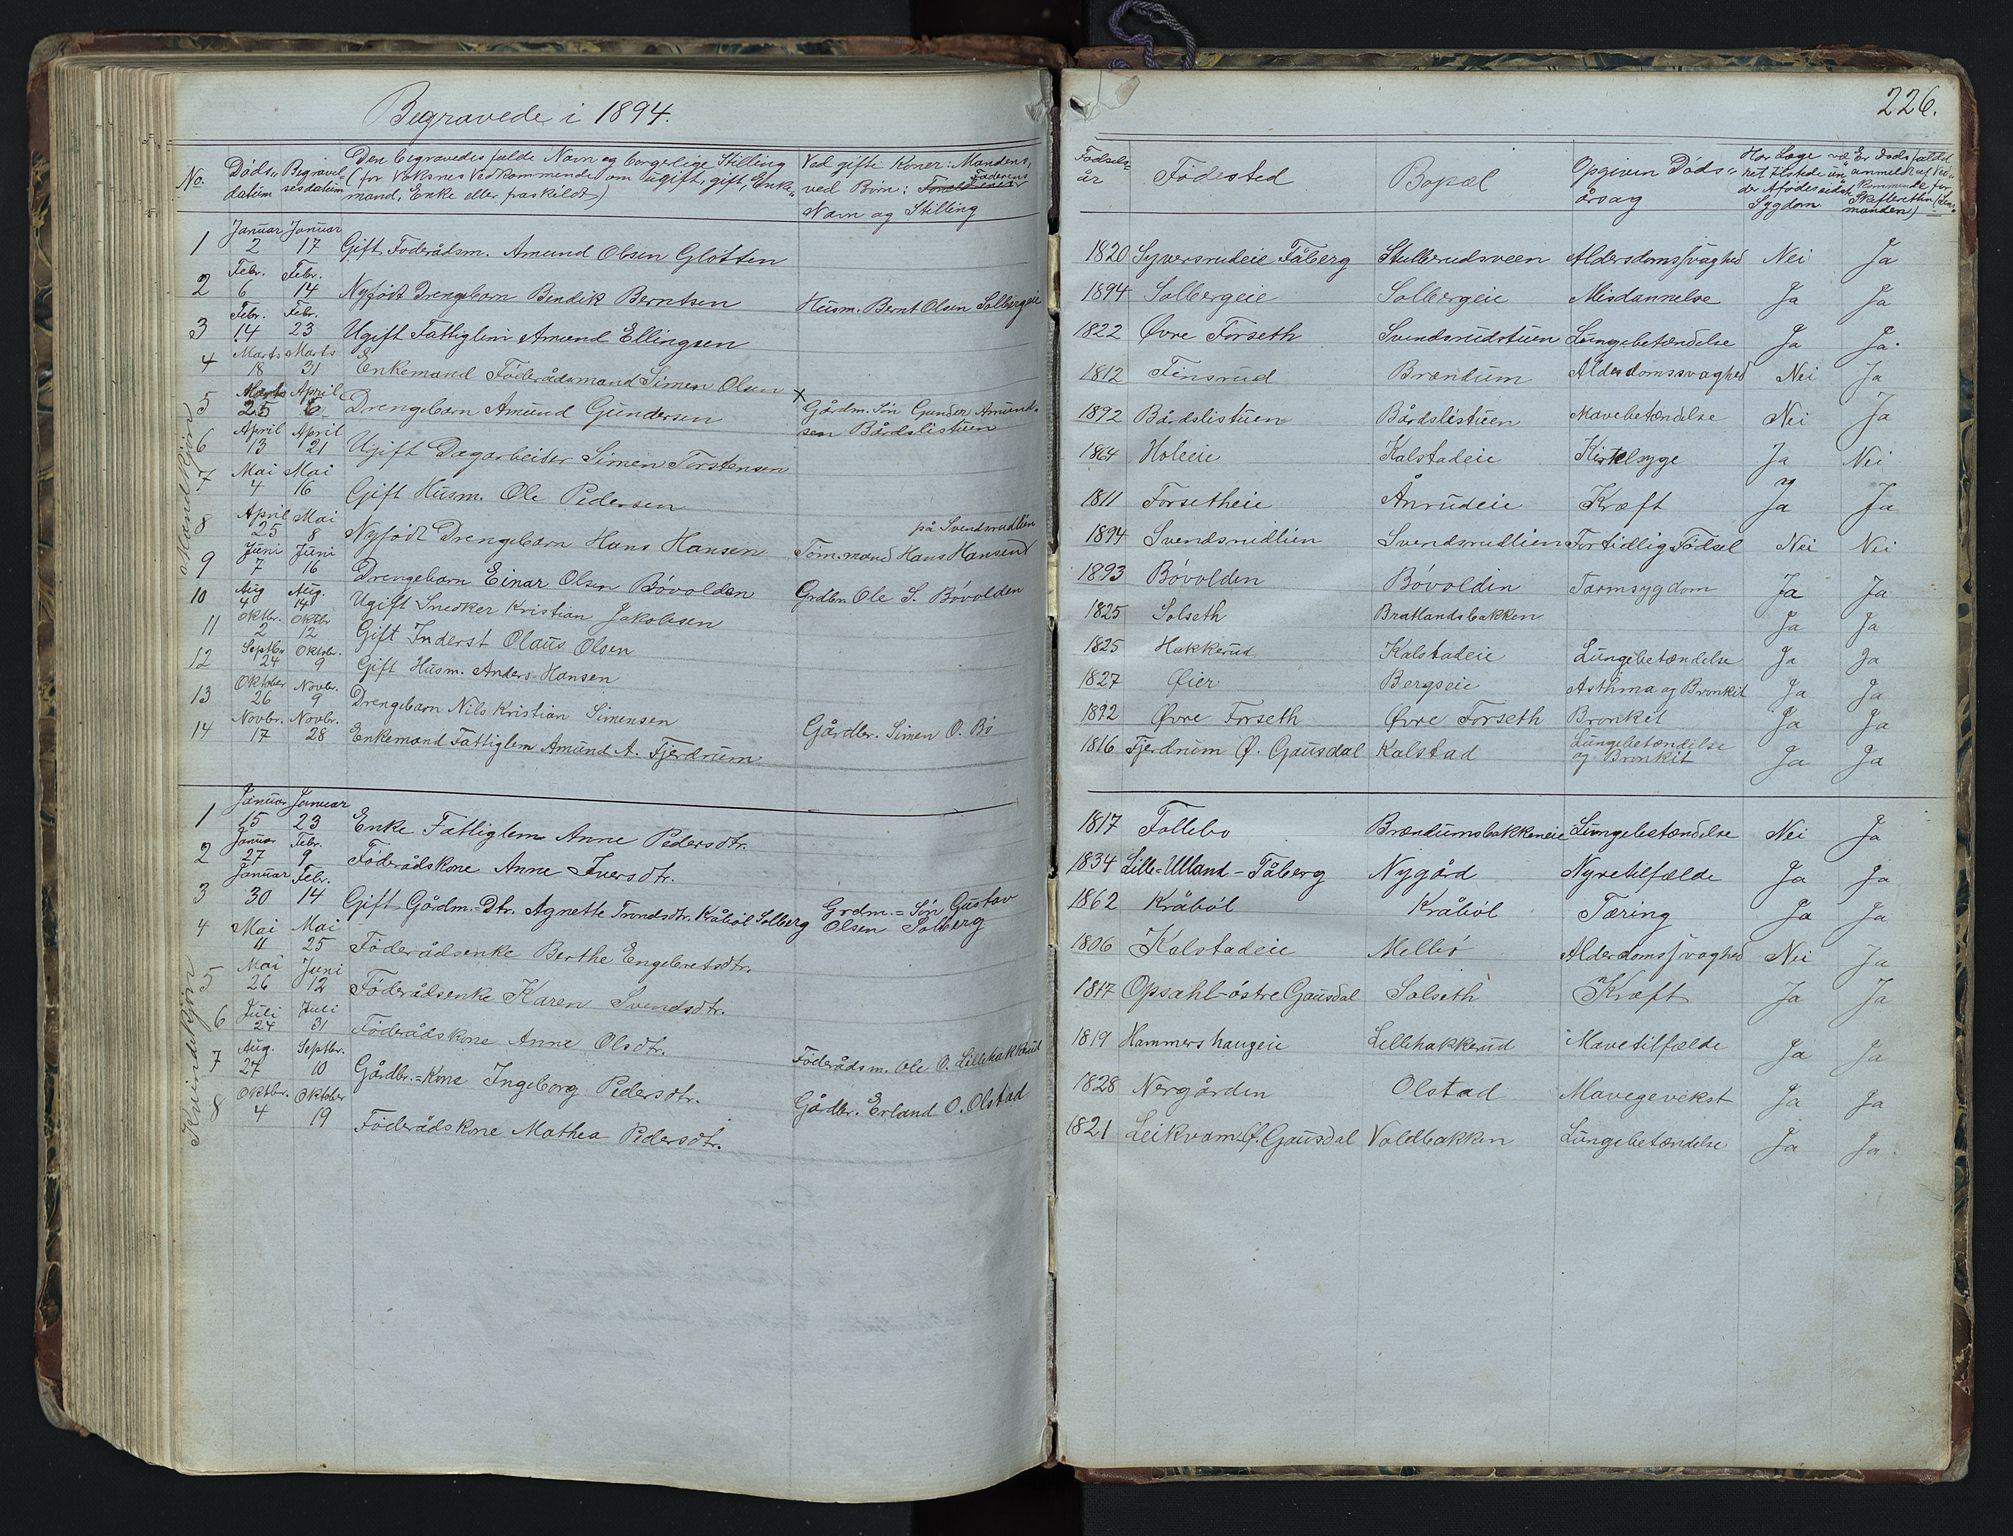 Begravede i 1894.
No.
Døds-datum
Begravelsesdatum
Den begravedes fulde Navn og borgerlige Stilling
(for Voksnes Vedkommende om ugift, gift, Enke-
mand, Enke eller fraskildt)
Ved gifte Koner: Mandens,
ved Børn: Faderens
Navn og Stilling
Mandkjøn
1 Januar 2 Januar 17 Gift Føderådsm. Amund Olsen Gløtten
2 Febr. 6 Febr. 14 Nyfødt Drengebarn Bendik Berntsen Husm. Bernt Olsen Solbergeie
3 Febr. 14 Febr. 23 Ugift Fattiglem Amund Ellingsen
4 Marts 18 Marts 31 Enkemand Føderådsmand Simen Olsen x
5 Marts 25 April 6 Drengebarn Amund Gundersen Gårdm. Søn Gunder Amund-
sen Bårdslistuen
6 April 13 April 21 Ugift Dagarbeider Simen Torstensen
7 Mai 4 Mai 16 Gift Husm. Ole Pedersen
på Svendsrudlien
8 April 25 Mai 8 Nyfødt Drengebarn Hans Hansen Tom.mand Hans Hansen
9 Juni 7 Juni 16 Drengebarn Einar Olsen Bøvolden Grdbr. Ole S. Bøvolden
10 Aug 4 Aug. 14 Ugift Snedker Kristian Jakobsen
11 Oktbr. 2 Oktbr 12 Gift Inderst Olaus Olsen
12 Septbr 24 Oktobr. 9 Gift Husm. Anders Hansen
13 Oktober 26 Novbr. 9 Drengebarn Nils Kristian Simensen Gårdbr. Simen O. Bø
14 Novbr. 17 Novbr. 28 Enkemand Fattiglem Amund A. Fjerdrum
Kvindekjøn
1 Januar 15 Januar 23 Enke Fattiglem Anne Pedersdtr.
2 Januar 27 Febr. 9 Føderådskone Anne Iversdtr.
3 Januar 30 Febr. 14 Gift Gårdm.-Dtr. Agnette Trondsdtr. Kråbøl Solberg Grdm.=Søn Gustav
Olsen Solberg
4 Mai 11 Mai 25 Føderådsenke Berthe Engebretsdtr.
5 Mai 26 Juni 12 Føderådsenke Karen Svendsdtr.
6 Juli 24 Juli 31 Føderådskone Anne Olsdtr. Føderådsm. Ole O. Lillehakkerud
7 Aug. 27 Septbr. 10 Gårdbr.=Kone Ingeborg Pedersdtr. Gårdbr. Erland O. Olstad
8 Oktbr. 4 Oktober 19 Føderådskone Mathea Pedersdtr.
226.
Fødsels-
år
Fødested
Bopæl
Opgiven Døds-
årsag
Har Læge væ-
ret tilstede un-
der Afdødes sidste
Sygdom
Er Dødsfaldet
anmeldt af Ved-
kommende for
Skifteretten (Lens-
manden)
1820 Syversrudeie Fåberg Stulkerudsveen Aldersdomssvaghed Nei Ja
1894 Solbergeie Solbergeie Misdannelse Ja Ja
1822 Øvre Forseth Svendsrudstuen Lungebetændelse Ja Ja.
1812 Finsrud Brændum Alderdomssvaghed Nei Ja
1892 Bårdslistuen Bårdslistuen Mavebetændelse Nei Ja
1864 Holeie Kalstadeie Kirtelsyge Ja Nei
1811 Forsetheie Ånrudeie Kræft Ja Ja
1894 Svendsrudlien Svendsrudlien Fortidlig Fødsel Nei Nei
1893 Bøvolden Bøvolden Tarmsygdom Ja Ja
1825 Solseth Bratlandsbakken Ja Ja
1825 Hakkerud Kalstadeie Lungebetændelse Ja Ja
1827 Øier Bergseie Asthma og Bronkit Ja Ja
1892 Øvre Forseth Øvre Forseth Bronkit Ja Ja
1816 Fjerdrum Ø. Gausdal Kalstad Lungebetændelse
og Bronkit Ja Ja
1817 Follebo Brændumsbakkeneie Lungebetændelse Nei Ja
1834 Lille-Ulland-Fåberg Nygård Nyretilfælde Ja Ja
1862 Kråbøl Kråbøl Tæring Ja Ja
1806 Kalstadeie Mellbø Alderdomssvaghed Nei Ja
1817 Opsahl-østre Gausdal Solseth Kræft Ja Ja
1819 Hammershaugeie Lillehakkerud Mavetilfælde Ja Ja
1828 Nergården Olstad Mavegevekst Ja Ja
1821 Leikvam Ø. Gausdal Voldbakken Lungebetændelse Ja Ja